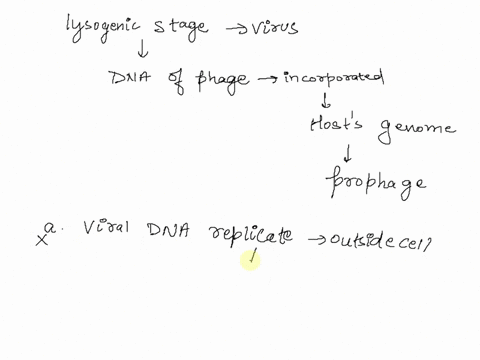 lysogenic stage → Virus
↓
DNA of phage → incorporated
↓
Host's genome
↓
prophage
x a. Viral DNA replicate → outside cell